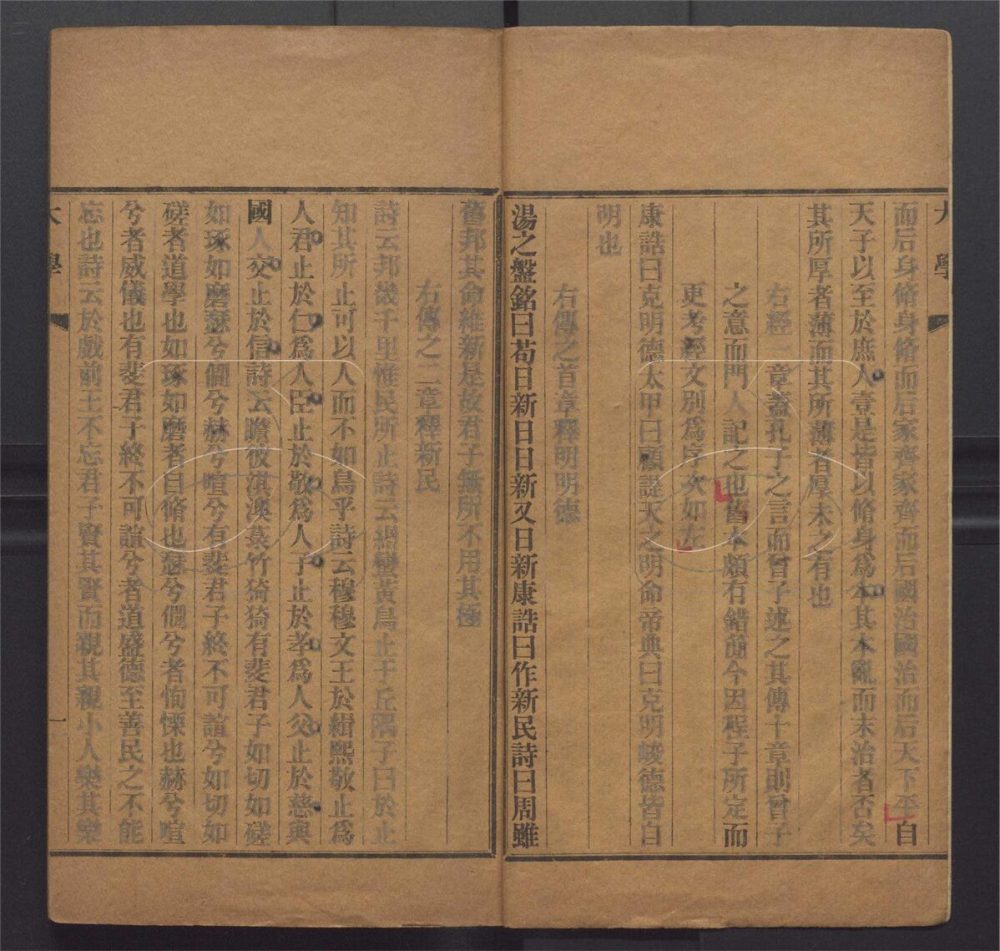 大學
而后身脩身脩而后家齊家齊而后國治國治而后天下平自
天子以至於庶人壹是皆以脩身爲本其本亂而末治者否矣
其所厚者薄而其所薄者厚未之有也
右經一章蓋孔子之言而曾子述之其傳十章則曾子
之意而門人記之也舊本頗有錯𥳑今因程子所定而
更考經文別爲序次如左
康誥曰克明德太甲曰顧諟天之明命帝典曰克明峻德皆自
明也
右傳之首章釋明明德
湯之盤銘曰苟日新日日新又日新康誥曰作新民詩曰周雖
舊邦其命維新是故君子無所不用其極
右傳之二章釋新民
詩云邦畿千里惟民所止詩云緡蠻黃鳥止于丘隅子曰於止
知其所止可以人而不如鳥乎詩云穆穆文王於緝熙敬止爲
人君止於仁爲人臣止於敬爲人子止於孝爲人父止於慈與
國人交止於信詩云瞻彼淇澳菉竹猗猗有斐君子如切如磋
如琢如磨瑟兮僩兮赫兮喧兮有斐君子終不可諠兮如切如
磋者道學也如琢如磨者自脩也瑟兮僩兮者恂慄也赫兮喧
兮者威儀也有斐君子終不可諠兮者道盛德至善民之不能
忘也詩云於戲前王不忘君子賢其賢而親其親小人樂其樂
大學
一